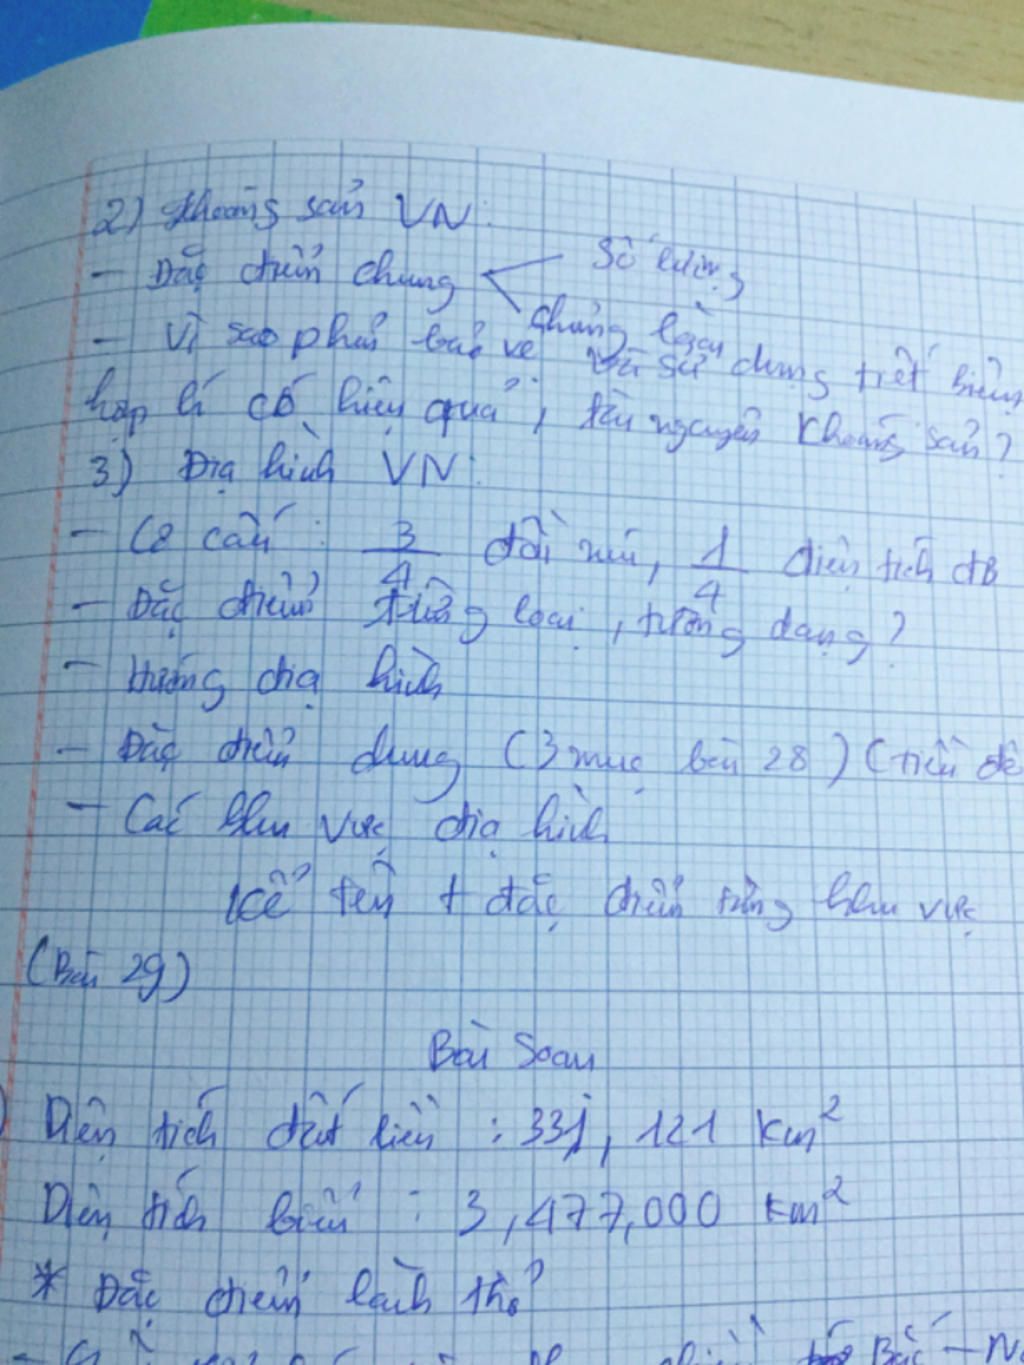 2) Khoáng sản VN:
- Đặc điểm chung < Số lượng
Chủng loại
- Vì sao phải bảo vệ và sử dụng tiết kiệm
hợp lí có hiệu quả, tài nguyên khoáng sản?
3) Địa hình VN:
- Cơ cấu : 3/4 đồi núi, 1/4 diện tích ĐB
- Đặc điểm từng loại, từng dạng?
- Hướng địa hình
- Đặc điểm chung (3 mục bài 28) (tiêu đề
- Các khu vực địa hình
Kể tên + đặc điểm từng khu vực
(Bài 29)
Bài Soạn
Diện tích đất liền : 331,121 km²
Diện tích biển : 3,477,000 km²
* Đặc điểm lãnh thổ
Bắc - N